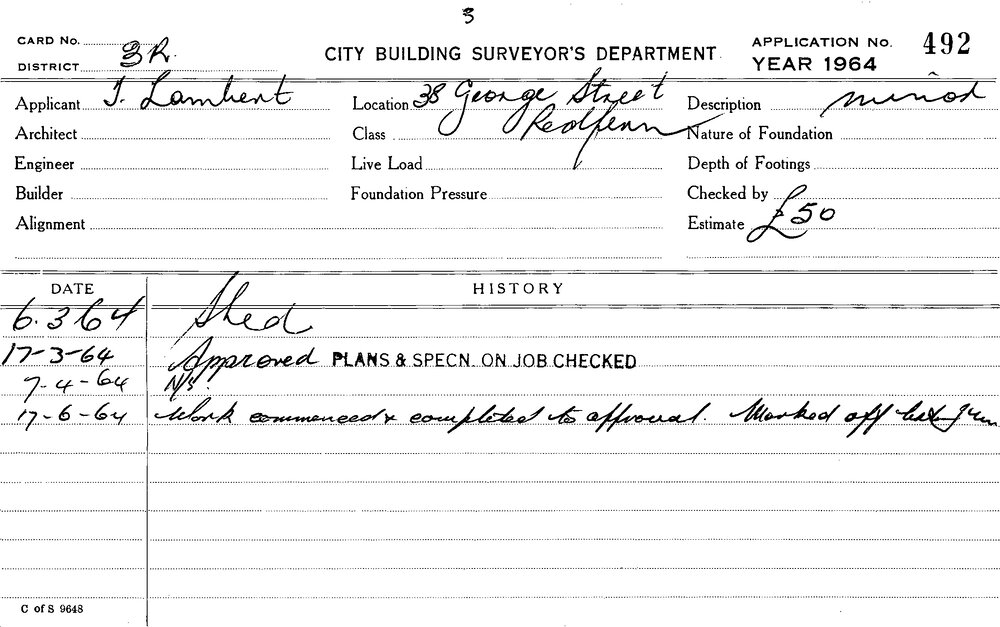 3
CARD No. APPLICATION No. 492
DISTRICT 3R. CITY BUILDING SURVEYOR'S DEPARTMENT YEAR 1964
Applicant J. Lambert Location 38 George Street Description minor
Architect Class Redfern Nature of Foundation
Engineer Live Load Depth of Footings
Builder Foundation Pressure Checked by
Alignment Estimate £50
DATE HISTORY
6.3.64 Shed
17-3-64 Approved PLANS & SPECN. ON JOB CHECKED
7-4-64 N/S.
17-6-64 Work commenced & completed to approval. Marked off
C of S 9648